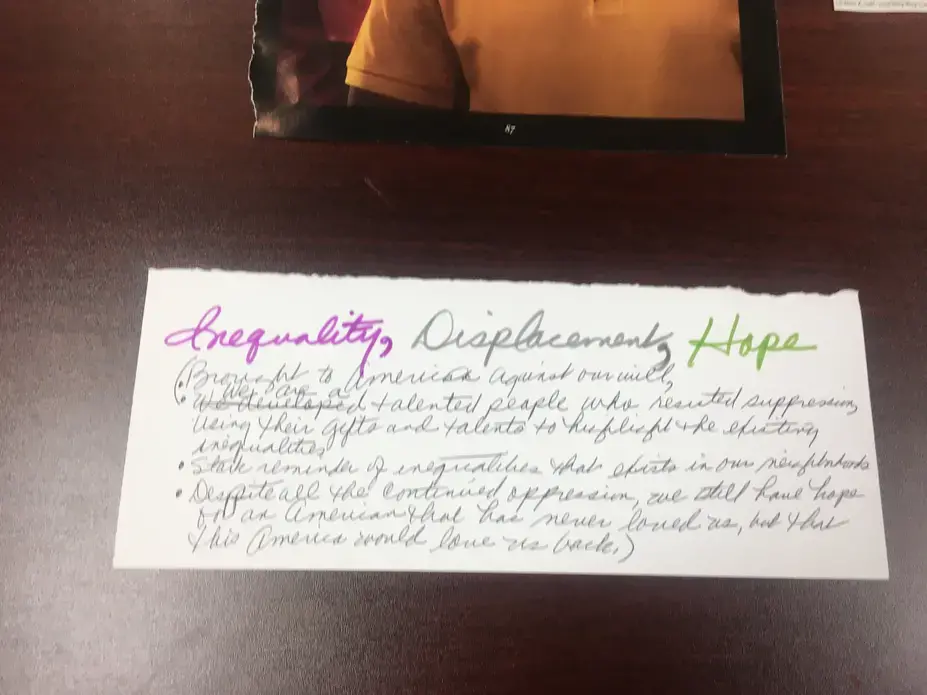 87
Inequality, Displacement, Hope
(• Brought to American against our will,
We are a
• We developed talented people who resisted suppression,
using their gifts and talents to highlight the existing
inequalities
• Stark reminder of inequalities that exists in our neighborhoods
• Despite all the continued oppression, we still have hope
for an American that has never loved us, but that
this America would love us back.)